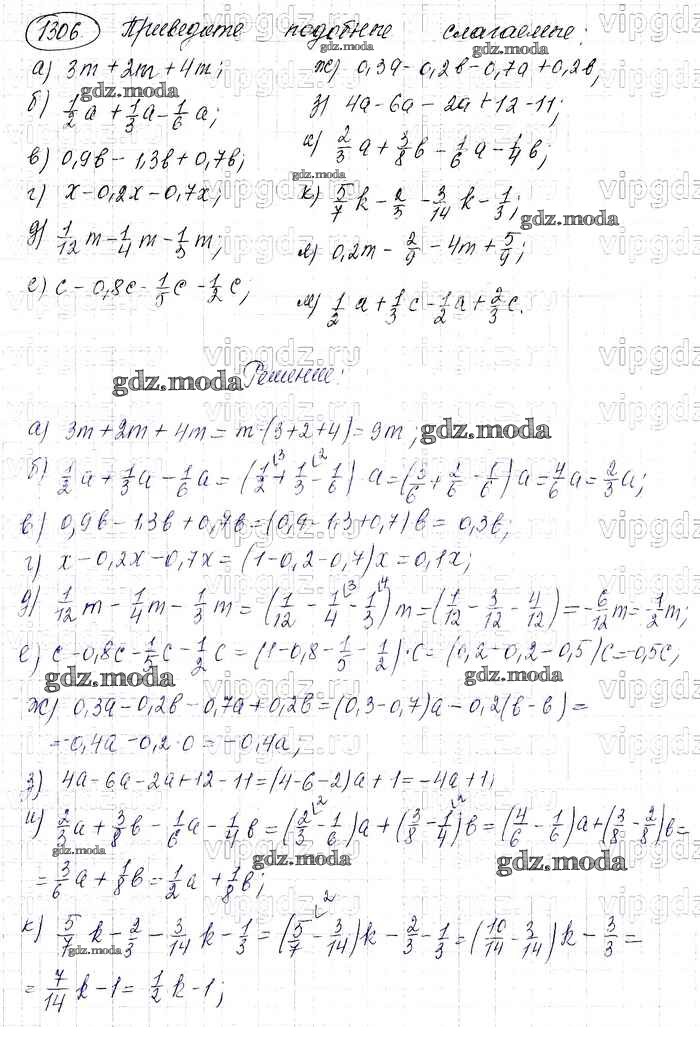 1306 Приведите подобные слагаемые:
а) 3m + 2m + 4m;
б) 1/2 a + 1/3 a - 1/6 a;
в) 0,9в - 1,3в + 0,7в;
г) x - 0,2x - 0,7x;
д) 1/12 m - 1/4 m - 1/3 m;
е) c - 0,8c - 1/5 c - 1/2 c;
ж) 0,3а - 0,2в - 0,7а + 0,2в;
з) 4а - 6а - 2а + 12 - 11;
и) 2/3 а + 3/8 в - 1/6 а - 1/4 в;
к) 5/7 k - 2/3 - 3/14 k - 1/3;
л) 0,2m - 2/9 - 4m + 5/9;
м) 1/2 а + 1/3 c - 1/2 а + 2/3 c.
Решение:
а) 3m + 2m + 4m = m·(3+2+4) = 9m;
б) 1/2 а + 1/3 а - 1/6 а = (1/2 + 1/3 - 1/6) а = (3/6 + 2/6 - 1/6) а = 4/6 а = 2/3 а;
в) 0,9в - 1,3в + 0,7в = (0,9 - 1,3 + 0,7) в = 0,3в;
г) x - 0,2x - 0,7x = (1 - 0,2 - 0,7)x = 0,1x;
д) 1/12 m - 1/4 m - 1/3 m = (1/12 - 1/4 - 1/3) m = (1/12 - 3/12 - 4/12) = -6/12 m = -1/2 m;
е) c - 0,8c - 1/5 c - 1/2 c = (1 - 0,8 - 1/5 - 1/2)·c = (0,2 - 0,2 - 0,5)c = -0,5c;
ж) 0,3а - 0,2в - 0,7а + 0,2в = (0,3 - 0,7)а - 0,2(в - в) =
= -0,4а - 0,2·0 = -0,4а;
з) 4а - 6а - 2а + 12 - 11 = (4 - 6 - 2)а + 1 = -4а + 1;
и) 2/3 а + 3/8 в - 1/6 а - 1/4 в = (2/3 - 1/6)а + (3/8 - 1/4)в = (4/6 - 1/6)а + (3/8 - 2/8)в =
= 3/6 а + 1/8 в = 1/2 а + 1/8 в;
к) 5/7 k - 2/3 - 3/14 k - 1/3 = (5/7 - 3/14)k - 2/3 - 1/3 = (10/14 - 3/14)k - 3/3 =
= 7/14 k - 1 = 1/2 k - 1;
gdz.moda
vipgdz.ru